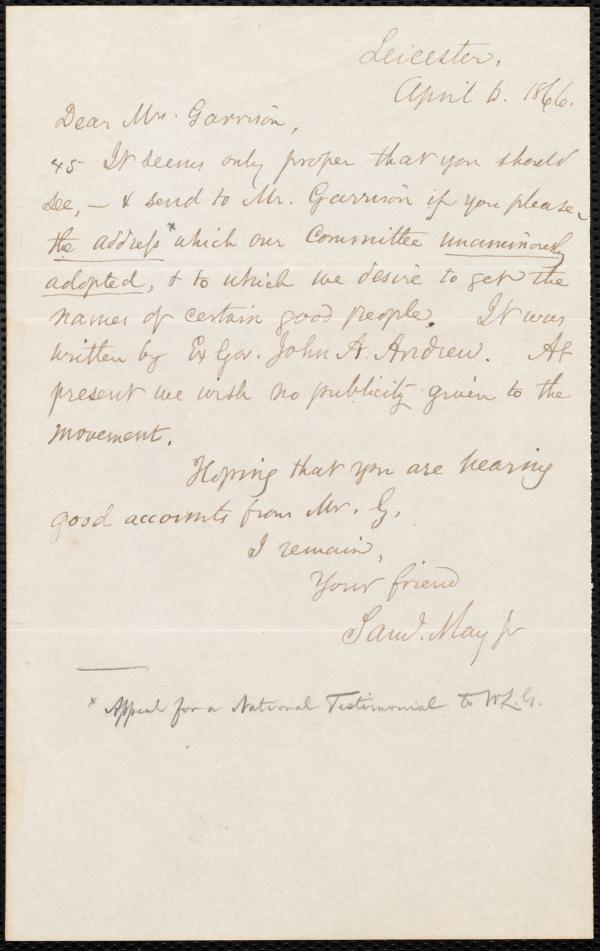 Leicester,
April 6. 1866.
Dear Mrs. Garrison,
45 It seems only proper that you should
see, — & send to Mr. Garrison if you please,
the address* which our Committee unanimously
adopted, & to which we desire to get the
names of certain good people. It was
written by Ex Gov. John A. Andrew. At
present we wish no publicity given to the
movement.
Hoping that you are hearing
good accounts from Mr. G.
I remain,
Your friend
Saml. May Jr
* Appeal for a National Testimonial to W.L.G.